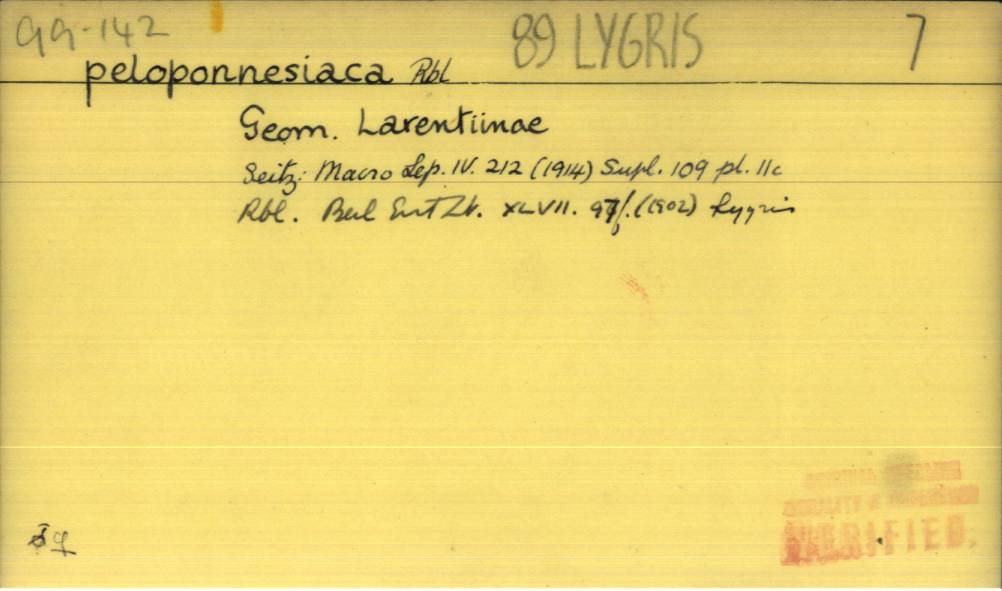 99-142 89 LYGRIS 7
peloponnesiaca Rbl
Geom. Larentiinae
Seitz: Macro Lep. IV. 212 (1914) Supl. 109 pl. 11c
Rbl. Berl Ent Zt. XLVII. (1902) Lygris
VERIFIED.